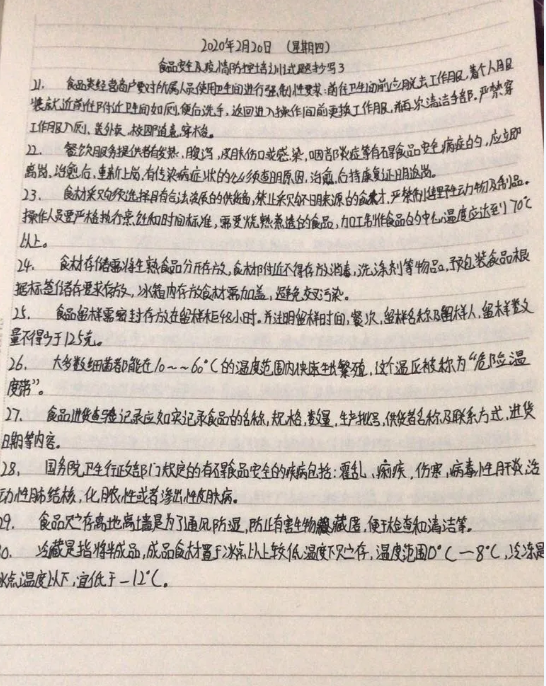 2020年2月20日 (星期四)
食品安全及疫情防控培训试题抄写3
21. 食品类经营商户要对所属人员使用卫生间进行强制性要求:前往卫生间前应脱去工作服,着个人服
装就近前往附近卫生间如厕,便后洗手,返回进入操作间前更换工作服,并再次清洁手部。严禁穿
工作服入厕、送外卖、校园随意穿梭。
22. 餐饮服务提供者有发热、腹泻、皮肤伤口或感染、咽部炎症等有碍食品安全病症的,应立即
离岗,治愈后,重新上岗,有传染病症状的必须查明原因,治愈后持康复证明返岗。
23. 食材采购须选择具有合法资质的供货商,禁止采购不明来源的食材,严禁制售野性动物及制品。
操作人员要严格执行烹饪和时间标准,需要烧熟煮透的食品,加工制作食品的中心温度应达到70℃
以上。
24. 食材存储需将生熟食品分开存放,食材附近不得存放消毒、洗涤剂等物品。预包装食品根
据标签储存要求存放,冰箱内存放食材需加盖,避免交叉污染。
25. 食品留样需密封存放在留样柜48小时。并注明留样时间、餐次、留样名称及留样人,留样数
量不得少于125克。
26. 大多数细菌都能在10~~60°C的温度范围内快速生长繁殖,这个温区被称为“危险温
度带”。
27. 食品进货查验记录应如实记录食品的名称、规格、数量、生产批号、供货者名称及联系方式、进货
日期等内容。
28. 国务院卫生行政部门规定的有碍食品安全的疾病包括:霍乱、痢疾、伤寒、病毒性肝炎、活
动性肺结核、化脓性或者渗出性皮肤病。
29. 食品贮存离地离墙是为了通风防湿,防止有害生物藏匿,便于检查和清洁等。
30. 冷藏是指将半成品、成品食材置于冰点以上较低温度下贮存,温度范围0°C—8°C,冷冻是
冰点温度以下,宜低于-12°C。